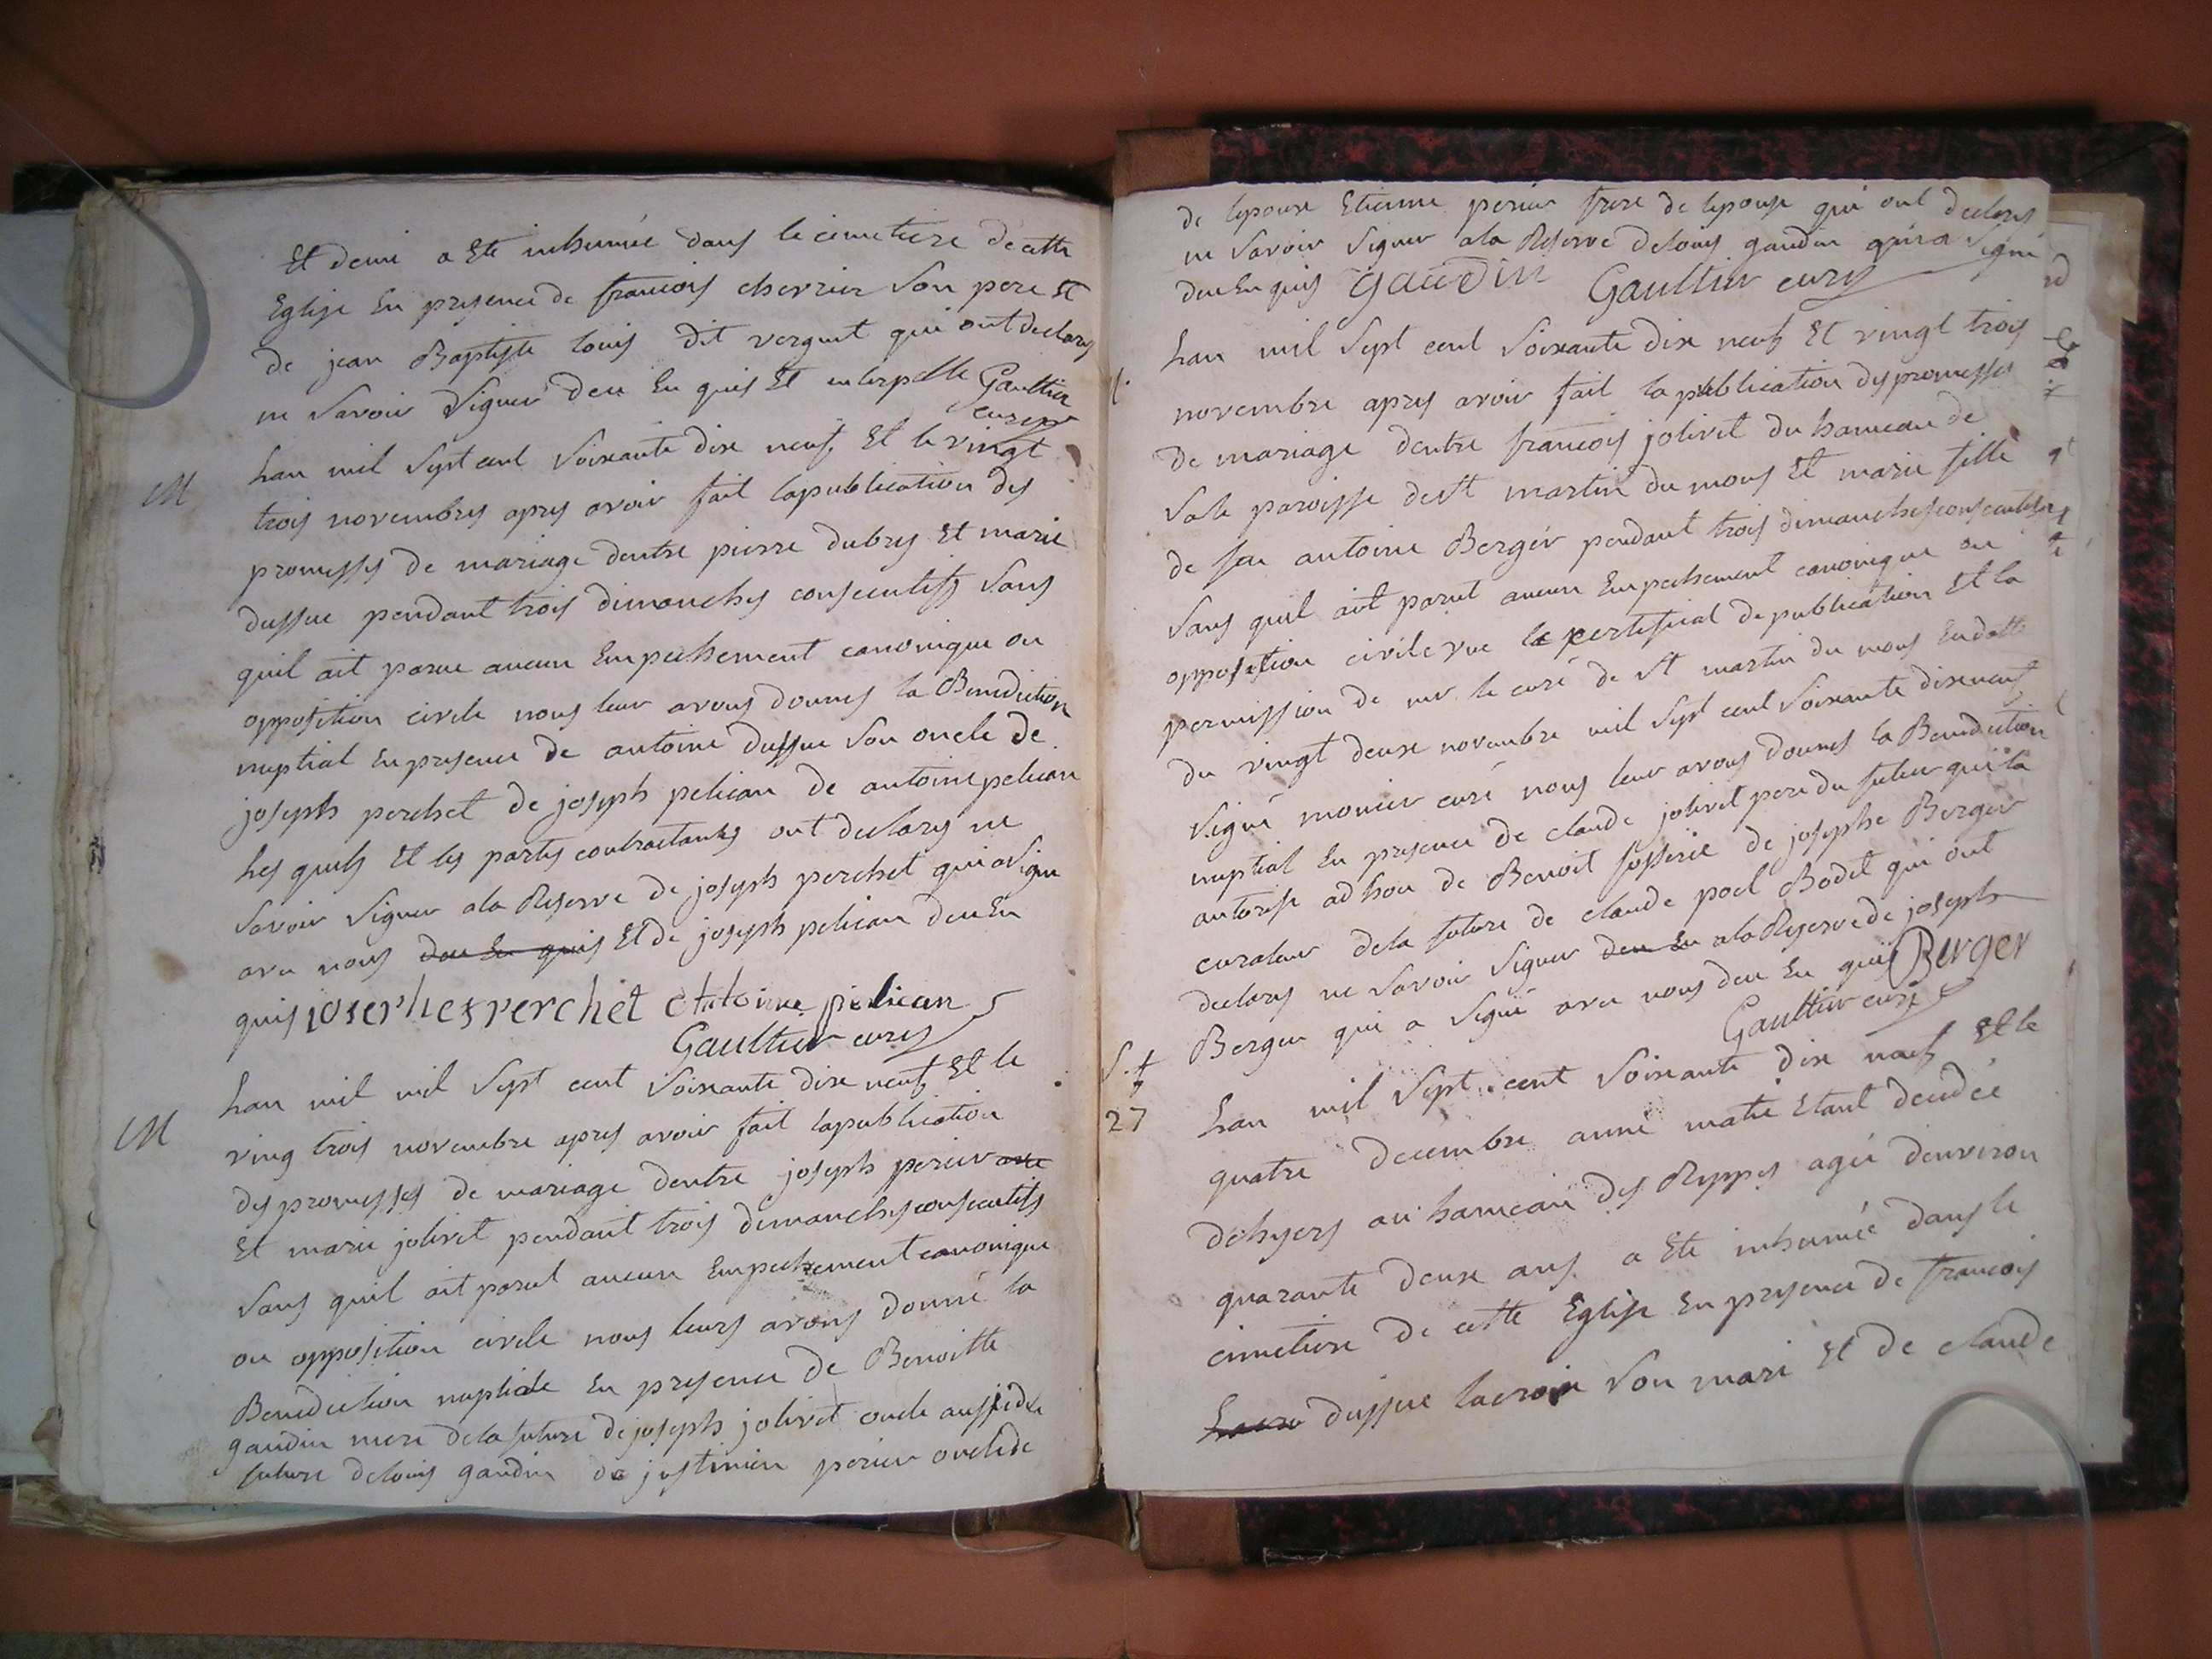 Et demi a Eté inhumée dans le cimetiere de cette
Eglise En presence de francois chevrier son pere Et
de jean Baptiste louis dit verguet qui ont declarés
ne savoir signer deu En quis Et interpellé Gaultier
curé
M
Lan mil sept cent soixante dix neuf Et le vingt
trois novembres apres avoir fait la publication des
promesses de mariage dentre pierre dubres Et marie
dussue pendant trois dimanches consecutifs sans
quil ait parue aucun Empechement canonique ou
opposition civile nous leur avons donnes la Benediction
nuptial En presence de antoine dussue son oncle de
joseph perchet de joseph pelican de antoine pelican
les quels Et les partes contractantes ont declares ne
savoir signer ala Reserve de joseph perchet qui a signe
avec nous deu En quis Et de joseph pelican deu En
quis joserhes perchet Antoine pelican
Gaultier curé
M
Lan mil mil sept cent soixante dix neuf Et le
ving trois novembre apres avoir fait la publication
des promesses de mariage dentre joseph perier avec
Et marie jolivet pendant trois dimanches consecutifs
sans quil ait parut aucun Empechement canonique
ou opposition civile nous leurs avons donné la
Benediction nuptiale En presence de Benoitte
gaudin mere de la future de joseph jolivet oncle aussi de la
future de louis gaudin de justinien perier oncle de
de lepouse Etienne perier frere de lepouse qui ont declares
ne savoir signer ala Reserve de louis gaudin qui a signé
deu En quis Gaudin Gaultier curé
Lan mil sept cent soixante dix neuf Et vingt trois
novembre apres avoir fait la publication des promesses
de mariage dentre francois jolivet du hameau de
sale paroisse de st martin du mons Et marie fille
de feu antoine Berger pendant trois dimanches consecutifs
sans quil ait parut aucun Empechement canonique ou
opposition civile vue le certificat de publication Et la
permission de mr le curé de st martin du mons En datte
du vingt deuxe novembre mil sept cent soixante dix neuf
signé monier curé nous leur avons donnes la Benediction
nuptial En presence de claude jolivet pere du futur qui la
autorise ad hoc de Benoit de josephe Berger
curateur de la future de claude poel Bodet qui ont
declares ne savoir signer deu En ala Reserve de joseph
Berger qui a signé avec nous deu En quis Berger
Gaultier curé
S. t
27
Lan mil sept cent soixante dix neuf Et le
quatre decembre anne Etant decedée
dehyers au hameau des Reppes agée denviron
quarante deux ans a Eté inhumée dans le
cimetiere de cette Eglise En presence de francois
dussue lacroix son mari Et de claude